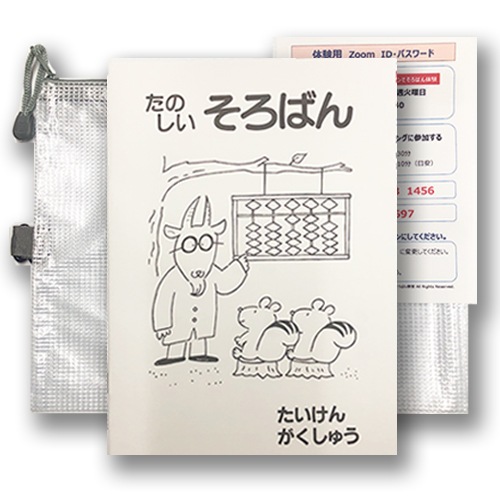 たの
しい そろばん
たいけん
がくしゅう
体験用 Zoom ID・パスワード
週火曜日
ングに参加する
1456
597
ンにしてください。
に変更してください。
All Rights Reserved.